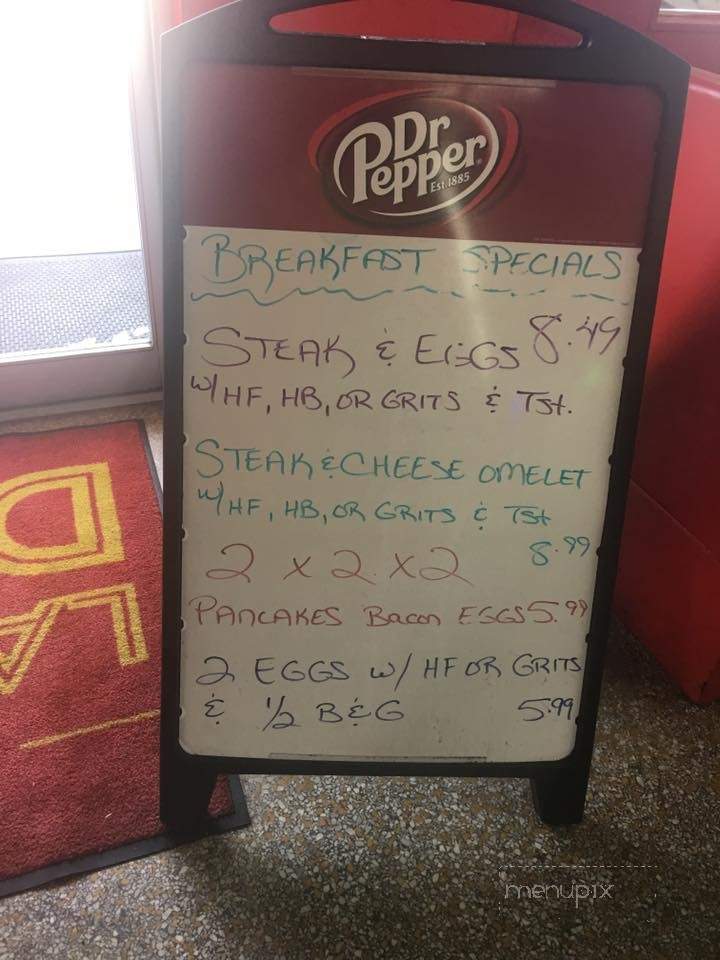 Dr
Pepper
Est.1885
BREAKFAST SPECIALS
STEAK & EGGS 8.49
w/ HF, HB, OR GRITS & TST.
STEAK & CHEESE OMELET
w/ HF, HB, OR GRITS & TST
8.99
2 x 2 x 2
PANCAKES Bacon EGGS 5.99
2 EGGS w/ HF OR GRITS
& 1/2 B & G 5.99
menupix